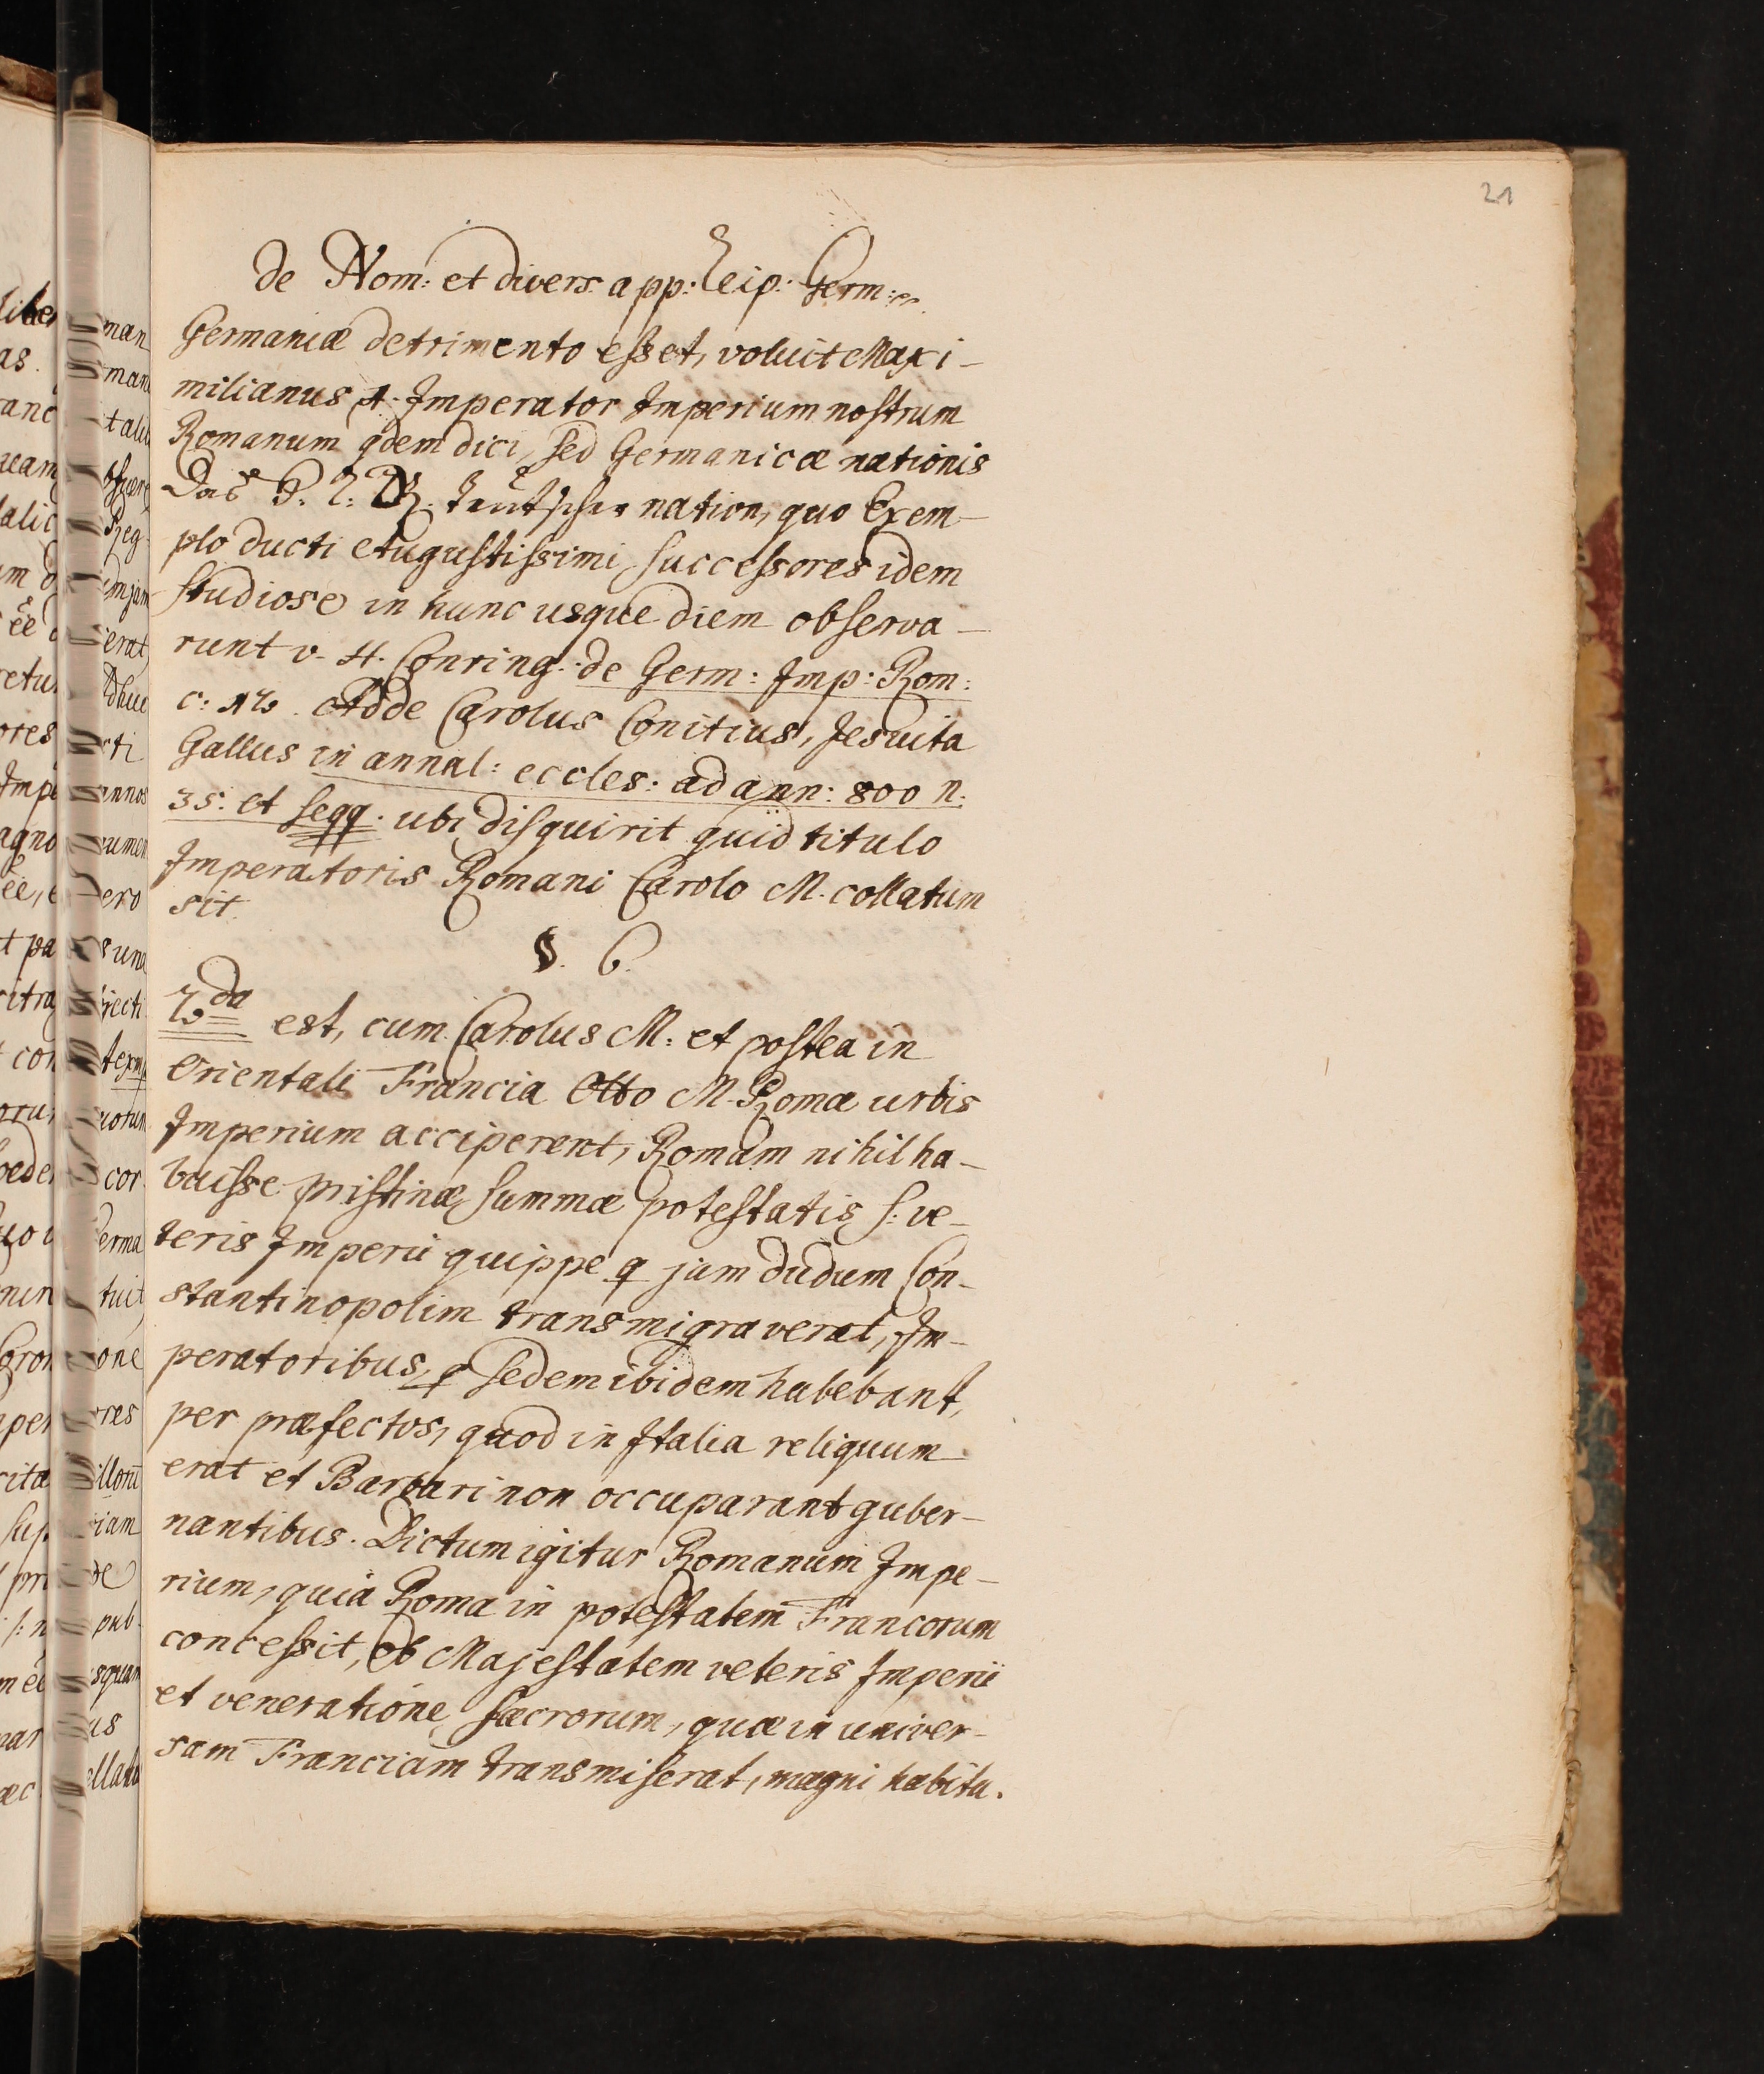 21
de Nom: et divers. app: Reip: Germ:
Germaniæ detrimento esset, voluit Maxi-
milianus 1. Imperator Imperium nostrum
Romanum qdem dici, sed Germanicæ nationis
Das H. R. R. teutscher nation, quo Exem-
plo ducti Augustissimi successores idem
studiose in hunc usque diem observa-
runt v. H. Conring. de Germ: Imp: Rom:
c: 12. Adde Carolus Conitius, Jesuita
Gallus in annal: eccles: ad ann: 800 n:
35: et seqq. ubi disquirit quid titulo
Imperatoris Romani Carolo M. collatum
sit.
§. 6.
2da est, cum Carolus M: et postea in
Orientali Francia Otto M. Romæ urbis
Imperium acciperent, Romam nihil ha-
buisse pristinæ summæ potestatis s: ve-
teris Imperii quippe q jam dudum Con-
stantinopolim transmigraverat, Im-
peratoribus, q sedem ibidem habebant,
per præfectos, quod in Italia reliquum
erat et Barbari non occuparant guber-
nantibus. Dictum igitur Romanum Impe-
rium, quia Roma in potestatem Francorum
concessit, ob Majestatem veteris Imperii
et veneratione sacrorum, quæ in univer-
sam Franciam transmiserat, magni habita.